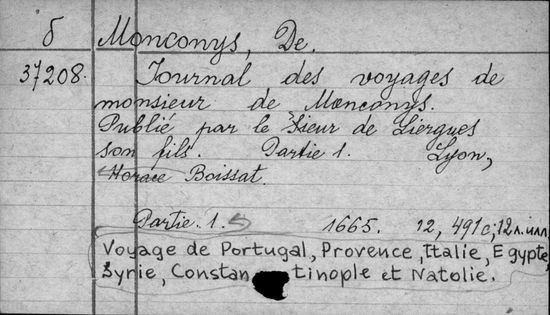 б Monconys, De.
37208. Journal des voyages de
monsieur de Monconys.
Publié par le Sieur de Liergues
son fils. Partie 1. Lyon,
Horace Boissat.
Partie. 1. 1665. 12, 491 с; 12 л. илл.
Voyage de Portugal, Provence, Italie, Egypte,
Syrie, Constantinople et Natolie.